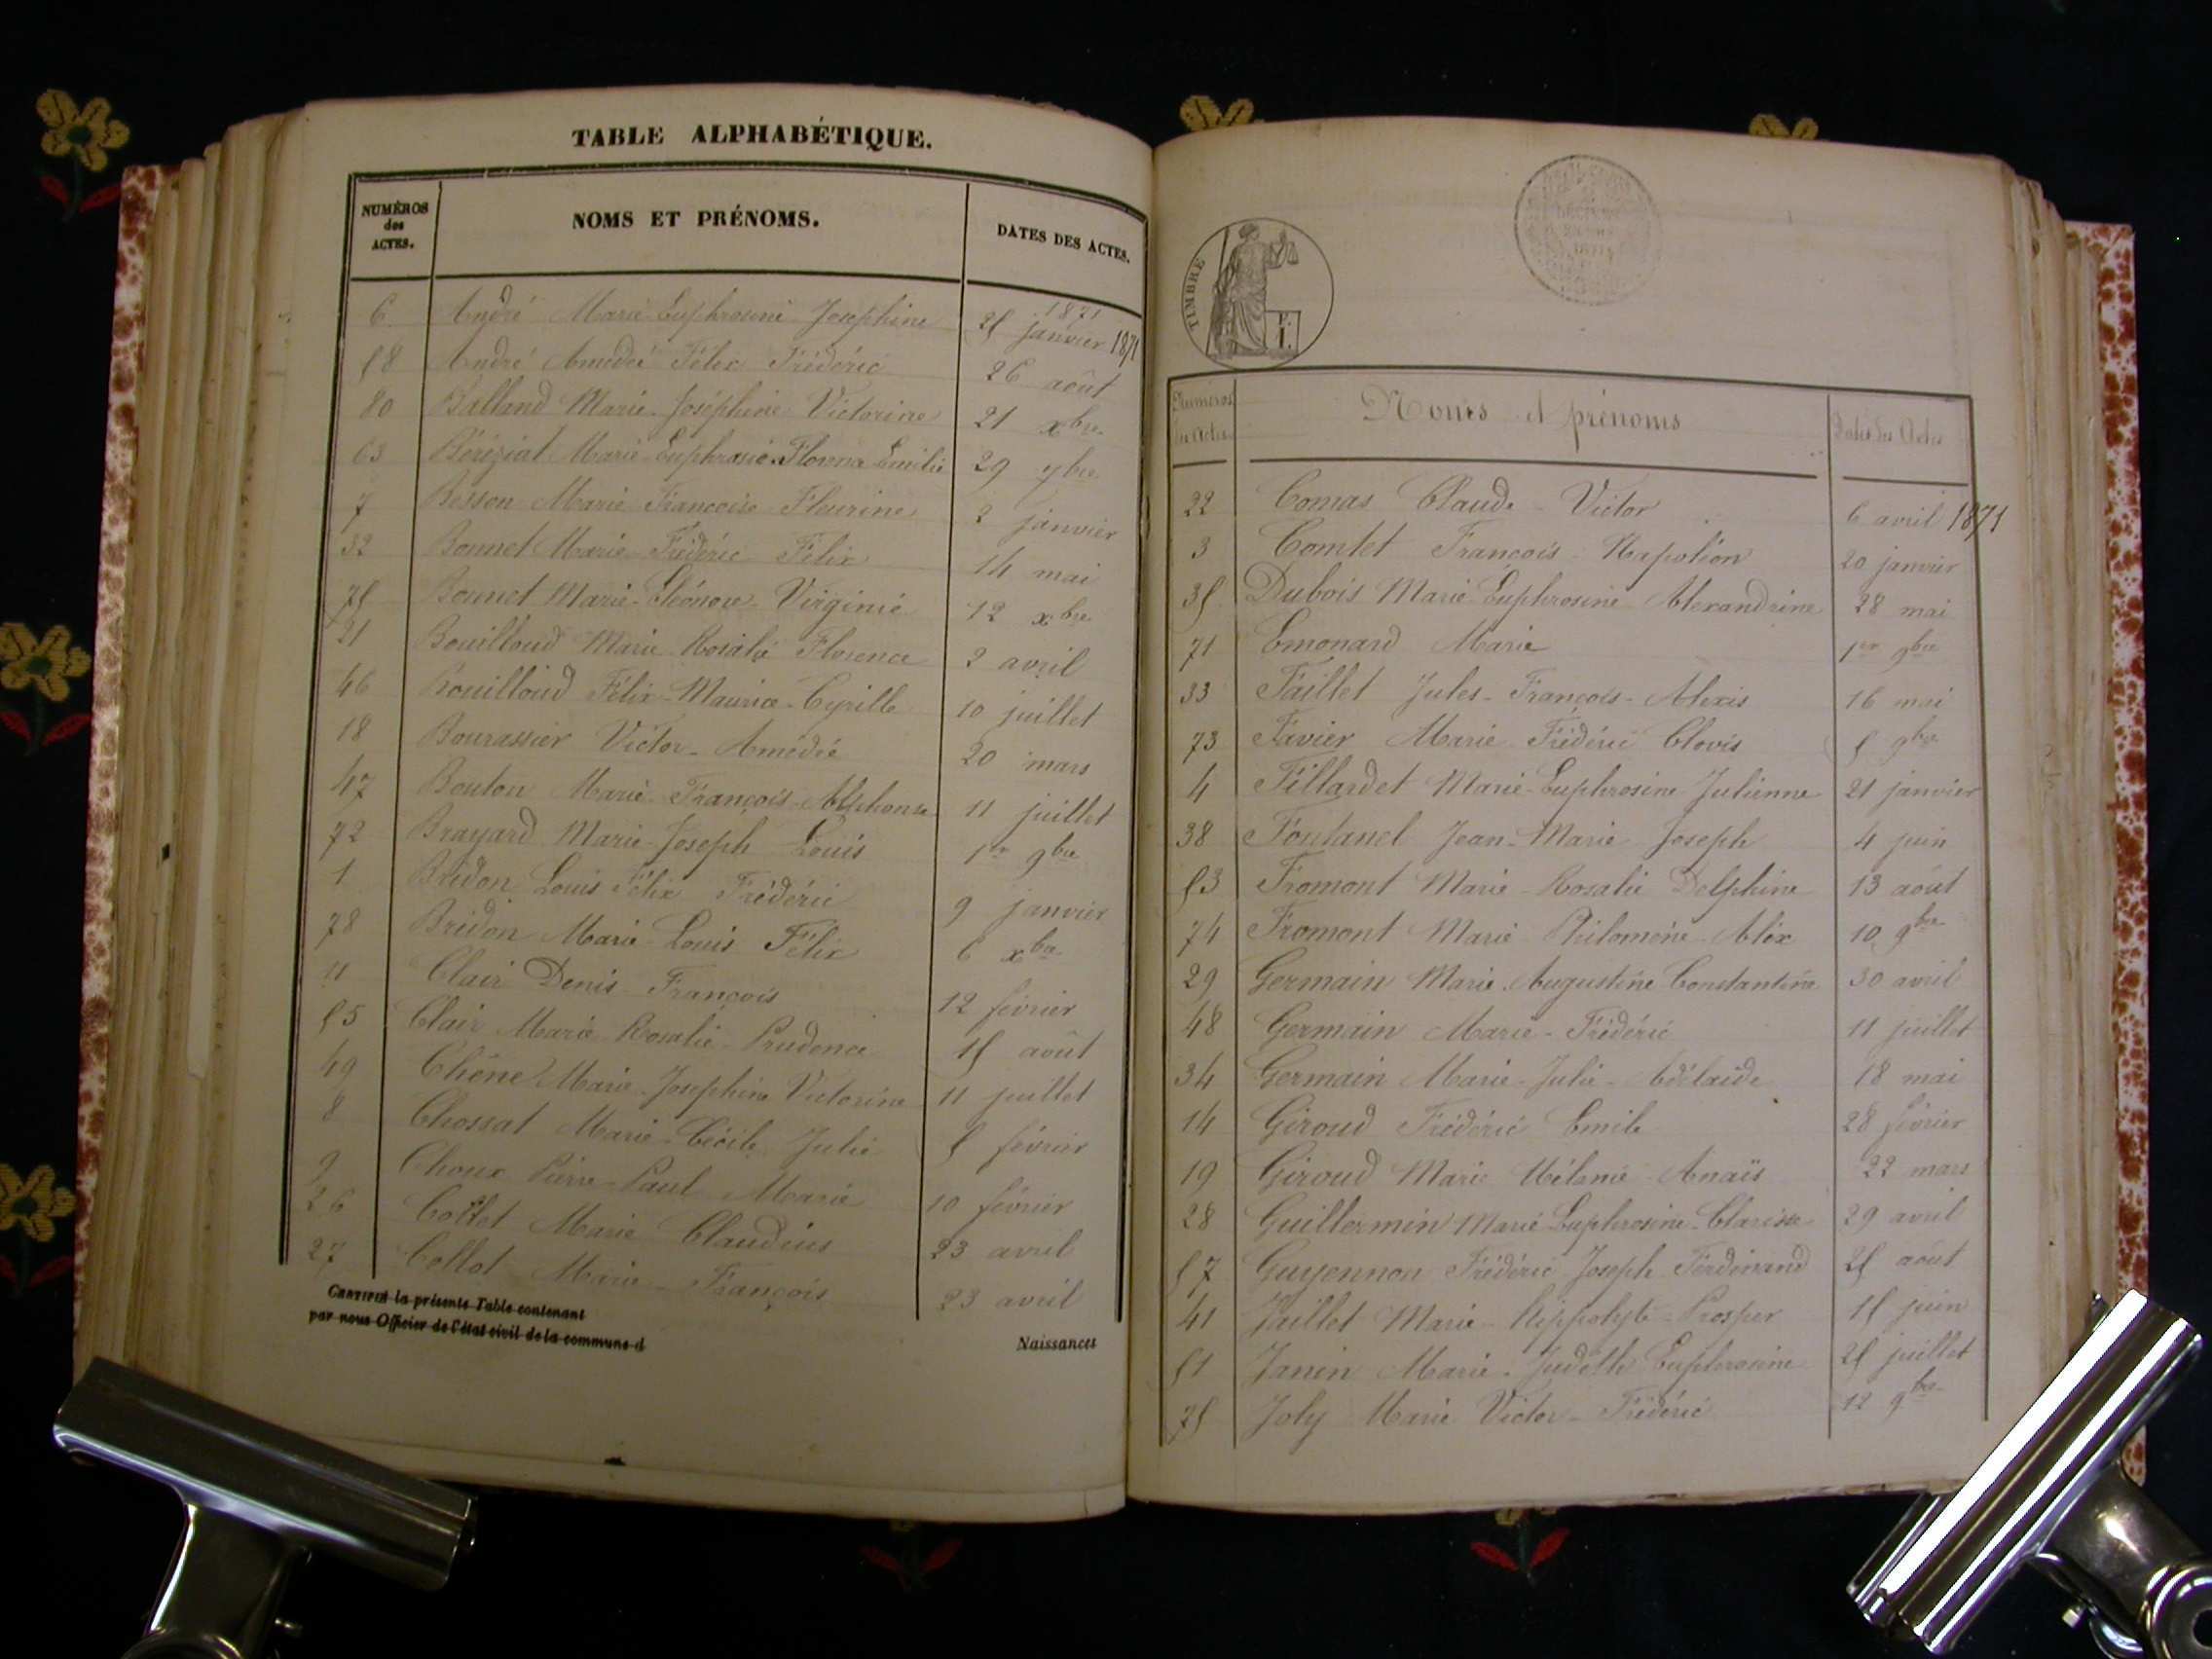 TABLE ALPHABÉTIQUE.
NUMÉROS des ACTES. NOMS ET PRÉNOMS. DATES DES ACTES.
1871
6 André Marie Euphrosine Josephine 25 janvier 1871
58 André Amédée Félix Frédéric 26 août
80 Balland Marie Joséphine Victorine 21 xbre
63 Béréziat Marie Euphrasie Florence Emilie 29 7bre
7 Besson Marie Françoise Fleurine 2 janvier
32 Bonnet Marie Frédéric Félix 14 mai
79 Bonnet Marie Eléonore Virginie 12 xbre
21 Bouilloud Marie Rosalie Florence 2 avril
46 Bouilloud Félix Maurice Cyrille 10 juillet
18 Bourassier Victor Amédée 20 mars
47 Bouton Marie François Alphonse 11 juillet
72 Brayard Marie Joseph Louis 1er 9bre
1 Bridon Louis Félix Frédéric 9 janvier
78 Bridon Marie Louis Félix 6 xbre
11 Clair Denis François 12 février
55 Clair Marie Rosalie Prudence 15 août
49 Chêne Marie Josephine Victorine 11 juillet
8 Chossat Marie Cécile Julie 5 février
9 Choux Pierre Paul Marie 10 février
26 Collet Marie Claudius 23 avril
27 Collot Marie François 23 avril
CERTIFIÉ la présente Table contenant
par nous Officier de l'état civil de la commune d
Naissances
TIMBRE
Numéros des Actes Noms et prénoms Dates des Actes
22 Comas Claude Victor 6 avril 1871
3 Comtet François Napoléon 20 janvier
35 Dubois Marie Euphrosine Alexandrine 28 mai
71 Emonard Marie 1er 9bre
33 Faillet Jules François Alexis 16 mai
73 Favier Marie Frédéric Clovis 5 9bre
4 Fillardet Marie Euphrosine Julienne 21 janvier
38 Fontanel Jean Marie Joseph 4 juin
53 Fromont Marie Rosalie Delphine 13 août
74 Fromont Marie Philomène Alix 10 9bre
29 Germain Marie Augustine Constantine 30 avril
48 Germain Marie Frédéric 11 juillet
34 Germain Marie Julie Adélaïde 18 mai
14 Giroud Frédéric Emile 28 février
19 Giroud Marie Mélanie Anaïs 22 mars
28 Guillermin Marie Euphrosine Clarisse 29 avril
57 Guyennon Frédéric Joseph Ferdinand 25 août
41 Jaillet Marie Hippolyte Prosper 15 juin
51 Janin Marie Judith Euphrosine 25 juillet
75 Joly Marie Victor Frédéric 12 9bre